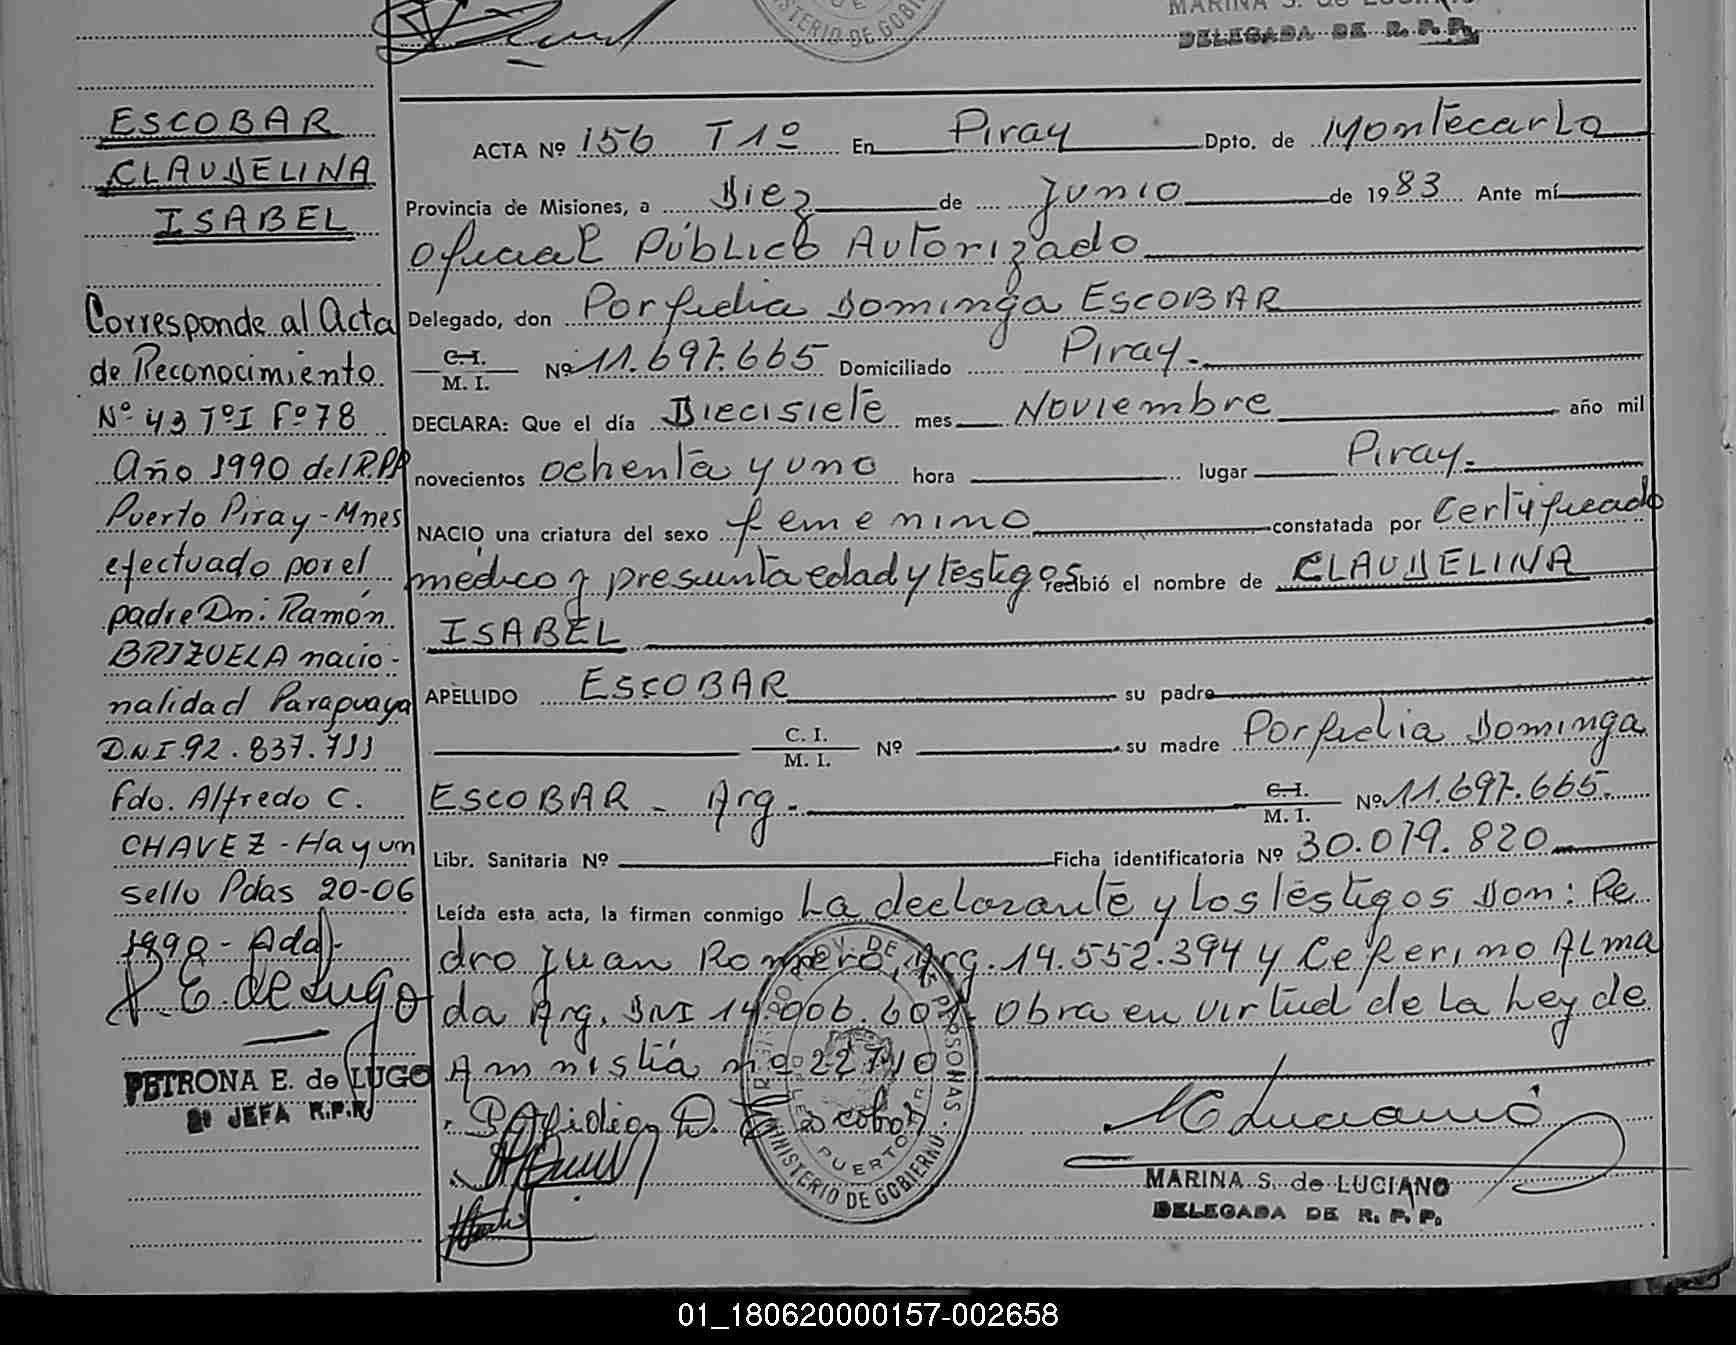 MARINA S. de LUCIANO
DELEGADA DE R. P. P.
MINISTERIO DE GOBI
ESCOBAR
CLAUDELINA
ISABEL
Corresponde al Acta
de Reconocimiento
Nº 43 TºI Fº 78
Año 1990 del R.P.P.
Puerto Piray - Mnes
efectuado por el
padre Dn: Ramón
BRIZUELA nacio-
nalidad Paraguaya
DNI 92.837.711
Fdo. Alfredo C.
CHAVEZ - Hay un
sello Pdas 20-06
1990 - Ada -
P. E. de Lugo
PETRONA E. de LUGO
2º JEFA R.P.P.
ACTA Nº 156 T 1º En Piray Dpto. de Montecarlo
Provincia de Misiones, a Diez de Junio de 1983 Ante mí
Oficial Público Autorizado
Delegado, don Porfidia Dominga ESCOBAR
C.I. M. I. Nº 11.697.665 Domiciliado Piray.
DECLARA: Que el día Diecisiete mes Noviembre año mil
novecientos ochenta y uno hora lugar Piray.
NACIO una criatura del sexo femenino constatada por Certificado
médico y presunta edad y testigos recibió el nombre de CLAUDELINA
ISABEL
APELLIDO ESCOBAR su padre
C. I. M. I. Nº su madre Porfidia Dominga
ESCOBAR - Arg. C.I. M. I. Nº 11.697.665.
Libr. Sanitaria Nº Ficha identificatoria Nº 30.079.820
Leída esta acta, la firman conmigo La declarante y los testigos Don: Pe
dro Juan Romero, Arg. 14.552.394 y Ceferino Alma
da Arg. DNI 14.006.607. Obra en virtud de la Ley de
Amnistía nº 22710
Porfidia D. Escobar
M S Luciano
PERSONAS
MINISTERIO DE GOBIERNO
PUERTO
MARINA S. de LUCIANO
DELEGADA DE R. P. P.
01_180620000157-002658